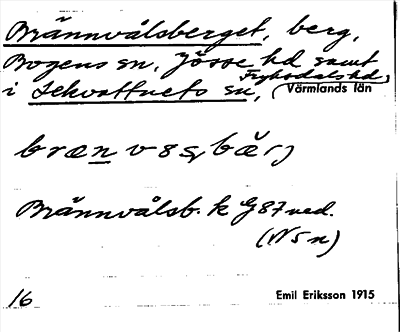 Brännvålsberget, berg,
Bogens sn, Jösse hd samt
Fryksdals hd,
i Lekvattnets sn, Värmlands län
Brännvålsb. k G 87 ned.
(N 5 n)
16 Emil Eriksson 1915